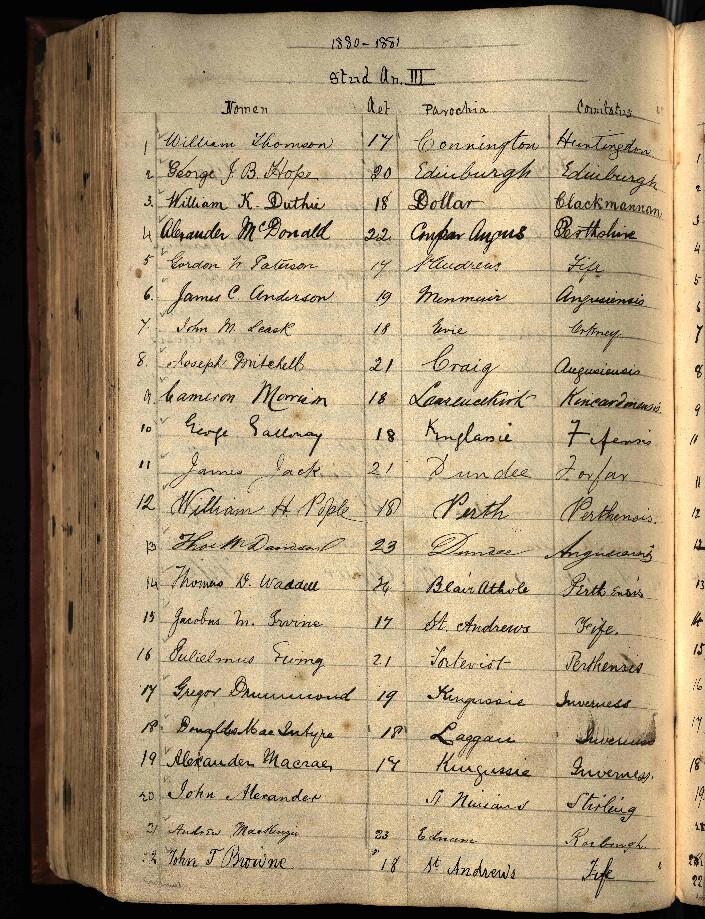 1880-1881
Stud An. III
Nomen Aet Parochia Comitatus
1 William Thomson 17 Connington Huntingdon
2 George J. B. Hope 20 Edinburgh Edinburgh
3. William K. Duthie 18 Dollar Clackmannan
4 Alexander McDonald 22 Cupar Angus Perthshire
5 Gordon N. Paterson 17 St Andrews Fife
6. James C. Anderson 19 Menmuir Angusiensis
7. John M. Leask 18 Evie Orkney
8. Joseph Mitchell 21 Craig Angusiensis
9 Cameron Morrison 18 Laurencekirk Kincardinensis
10 George Galloway 18 Kinglassie Fifensis
11 James Jack 21 Dundee Forfar
12 William H. Pople 18 Perth Perthensis.
13 Thos W Davidson 23 Dundee
14 Thomas D. Waddell Blair Athole Perthensis
15 Jacobus M. Irvine 17 St. Andrews Fife.
16 Gulielmus Ewing 21 Forteviot Perthensis
17 Gregor Drummond 19 Kingussie Inverness
18 Douglas MacIntyre 18 Laggan Inverness
19 Alexander Macrae 17 Kingussie Inverness.
20 John Alexander St Ninians Stirling
21 Andrew MacKenzie 23 Ednam Roxburgh
22 John T Browne 18 St Andrews Fife